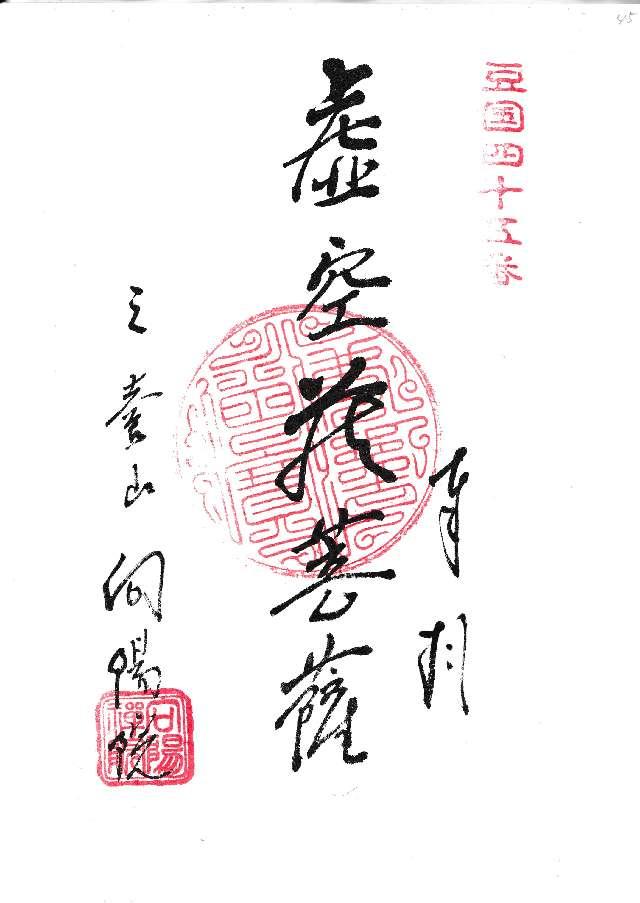 45
豆国四十五番
奉拝
虚空蔵菩薩
三養山 向陽院